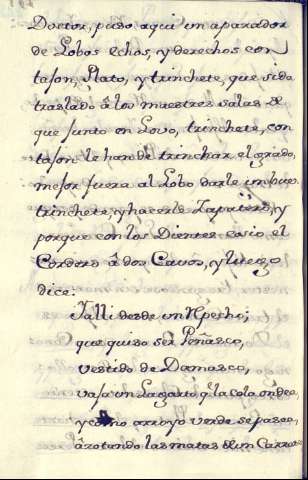 Doctor, puso aqui un aparador
de Lobos echos, y derechos con
tason, Plato, y trinchete, que sido
traslado â los maestres salas de
que junto en Lovo, trinchete, con
tason le han de trinchar el
mejor fuera al Lobo darle un buen
trinchete, y hacerle Zapatero, y
porque con los Dientes cosio el
Cordero â dos Cavos, y luego
dice:
Y alli desde un Repecho;
que quiso ser Peñasco,
vestido de Damasco,
vaja un Lagarto q. la cola ondea,
y como arroyo verde se pasea,
âzotando las matas de un